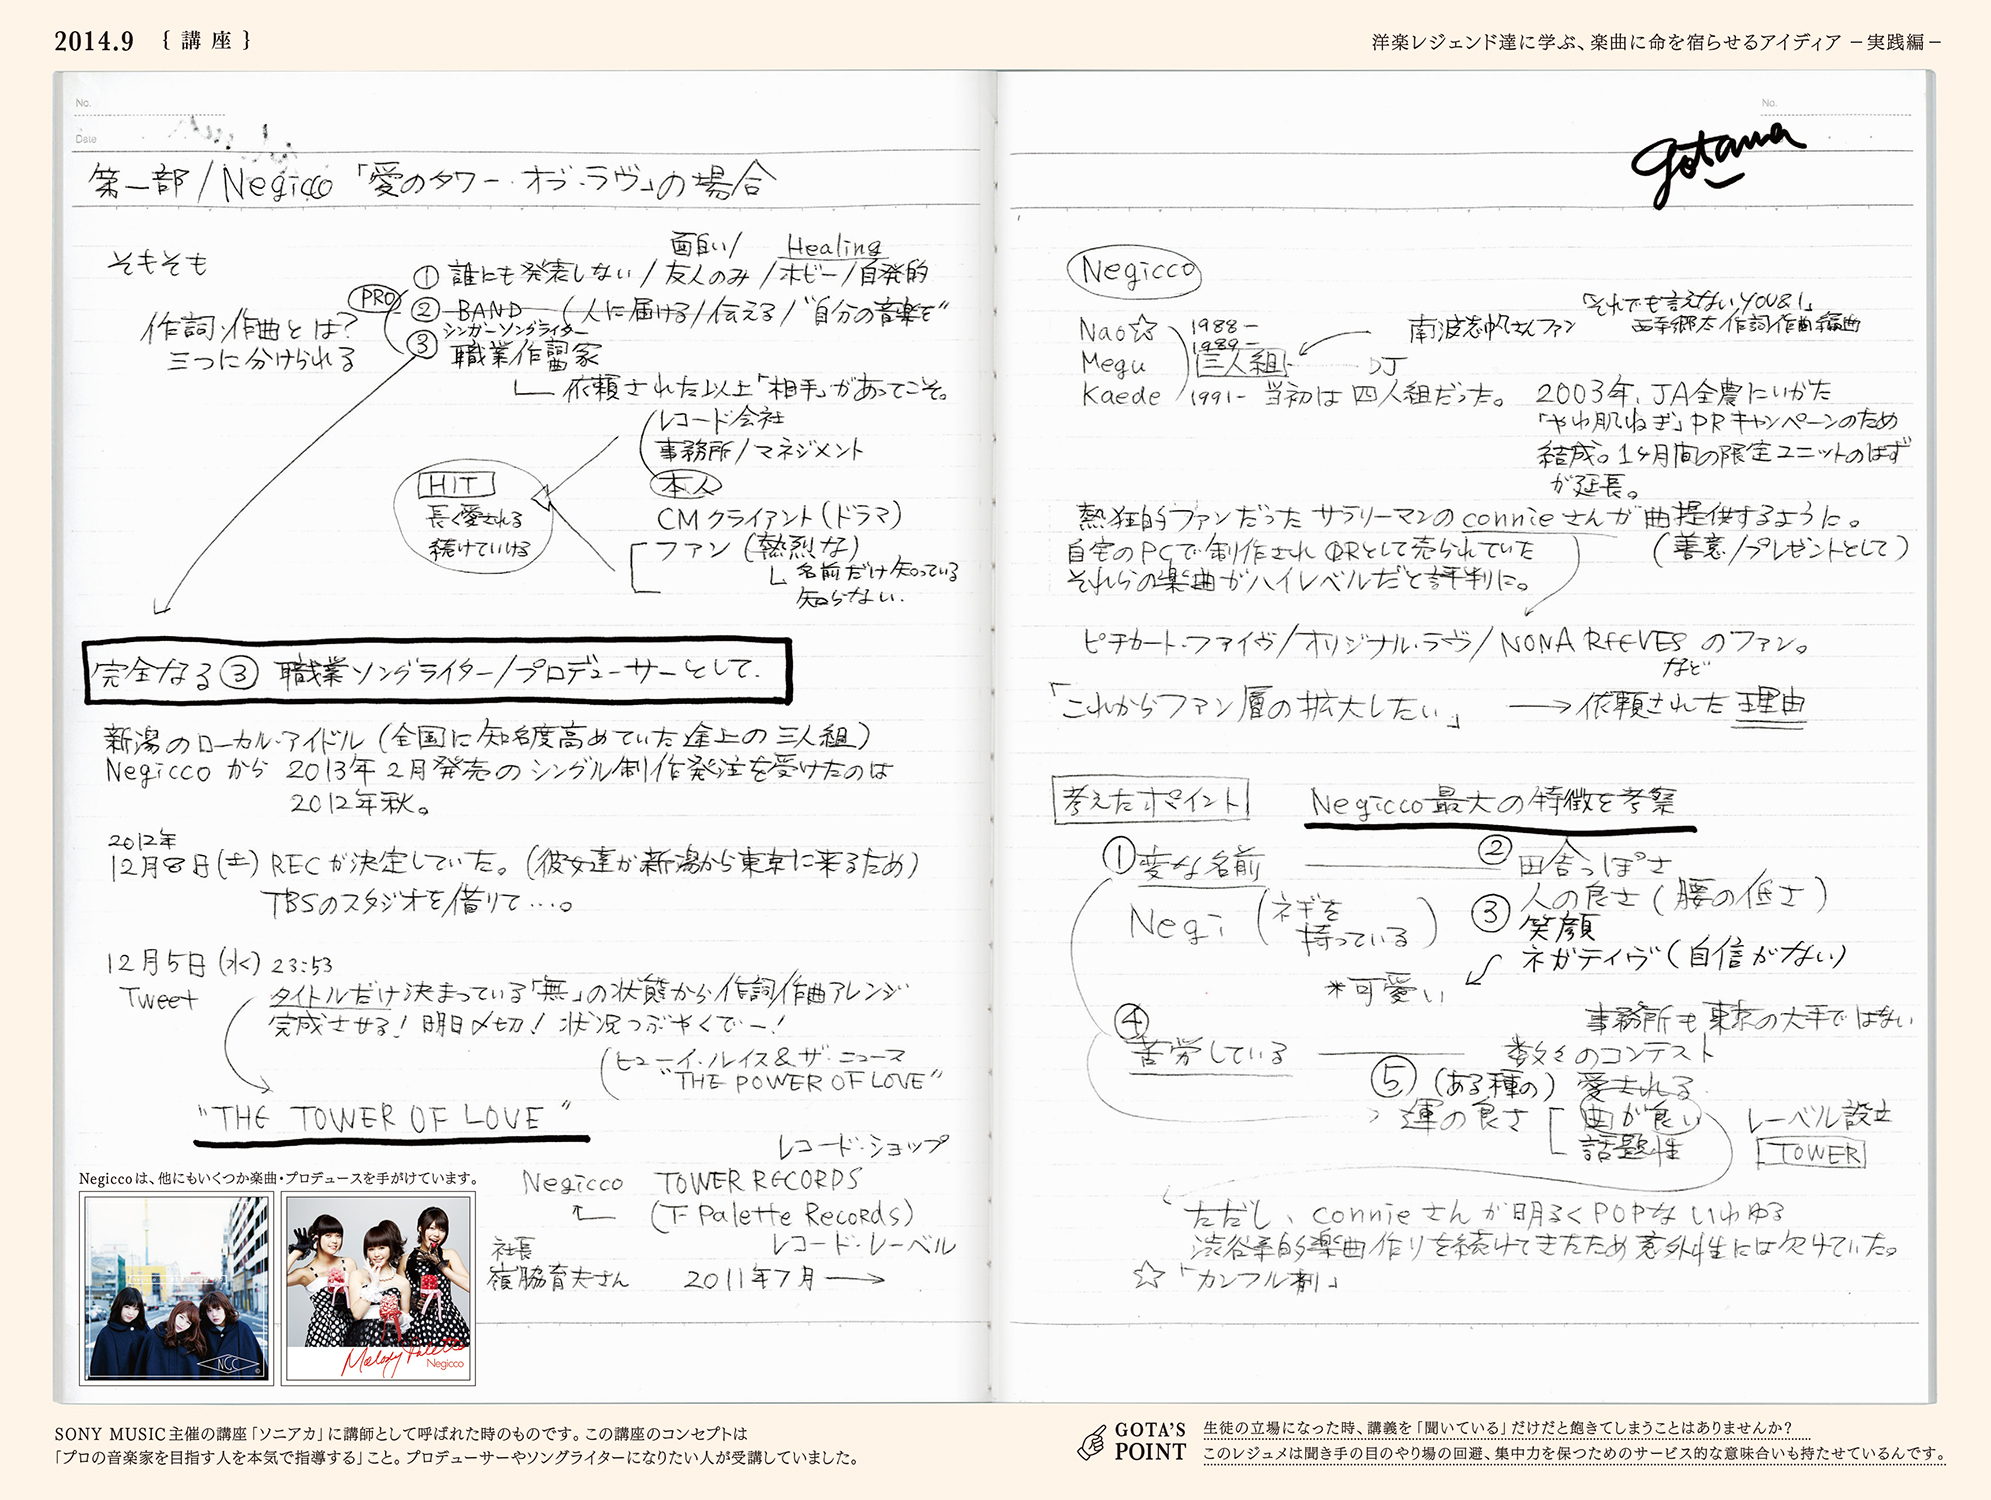 2014.9 { 講 座 }
洋楽レジェンド達に学ぶ、楽曲に命を宿らせるアイディア －実践編－
No.
Date
第一部/Negicco「愛のタワー・オブ・ラヴ」の場合
そもそも
作詞・作曲とは?
三つに分けられる
PRO
面白い/ Healing
① 誰にも発表しない/友人のみ/ホビー/自発的
② BAND (人に届ける/伝える/"自分の音楽を"
シンガーソングライター
③ 職業作詞曲家
依頼された以上「相手」があってこそ。
レコード会社
事務所/マネジメント
本人
CMクライアント(ドラマ)
ファン(熱烈な)
名前だけ知っている
知らない.
HIT
長く愛される
続けていける
完全なる③ 職業ソングライター/プロデューサーとして.
新潟のローカル・アイドル(全国に知名度高めていた途上の三人組)
Negiccoから 2013年2月発売のシングル制作発注を受けたのは
2012年秋。
2012年
12月8日(土) RECが決定していた。(彼女達が新潟から東京に来るため)
TBSのスタジオを借りて…。
12月5日(水) 23:53
Tweet
タイトルだけ決まっている「無」の状態から作詞作曲アレンジ
完成させる! 明日〆切! 状況つぶやくでー!
(ヒューイ・ルイス&ザ・ニュース
"THE POWER OF LOVE"
"THE TOWER OF LOVE"
Negiccoは、他にもいくつか楽曲・プロデュースを手がけています。
NCC
Melody Palette
Negicco
レコード・ショップ
Negicco TOWER RECORDS
(T-Palette Records)
レコード・レーベル
社長
嶺脇育夫さん 2011年7月 →
No.
gotama
Negicco
Nao☆ 1988-
Megu 1989-
Kaede 1991-
三人組
南波志帆さんファン
「それでも言えないYOU&I」
西寺郷太作詞作曲編曲
DJ
当初は四人組だった。
2003年、JA全農にいがた
「やわ肌ねぎ」PRキャンペーンのため
結成。1ヶ月間の限定ユニットのはず
が延長。
熱狂的ファンだったサラリーマンのconnieさんが曲提供するように。
(善意/プレゼントとして)
自宅のPCで制作されCDRとして売られていた
それらの楽曲がハイレベルだと評判に。
ピチカート・ファイヴ/オリジナル・ラヴ/NONA REEVES のファン。
など
「これからファン層の拡大したい」 → 依頼された理由
考えたポイント
Negicco最大の特徴を考察
①変な名前
②田舎っぽさ
Negi (ネギを
持っている)
③人の良さ(腰の低さ)
笑顔
ネガティヴ(自信がない)
*可愛い
④
苦労している
事務所も東京の大手ではない
数々のコンテスト
⑤(ある種の) 愛される
運の良さ
曲が良い
話題性
レーベル設立
TOWER
ただし、connieさんが明るくPOPないわゆる
渋谷系的楽曲作りを続けてきたため意外性には欠けていた。
☆「カンフル剤」
SONY MUSIC主催の講座「ソニアカ」に講師として呼ばれた時のものです。この講座のコンセプトは
「プロの音楽家を目指す人を本気で指導する」こと。プロデューサーやソングライターになりたい人が受講していました。
GOTA'S
POINT
生徒の立場になった時、講義を「聞いている」だけだと飽きてしまうことはありませんか?
このレジュメは聞き手の目のやり場の回避、集中力を保つためのサービス的な意味合いも持たせているんです。